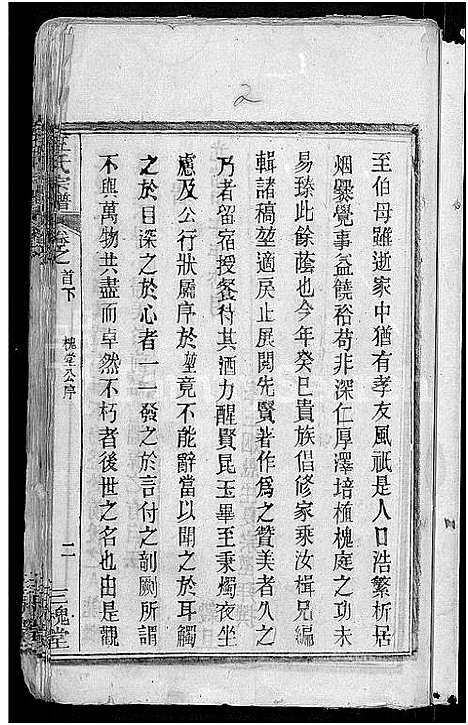 2
至伯母雖逝家中猶有孝友風祇是人口浩繁析居
烟爨覺事益饒裕苟非深仁厚澤培植槐庭之功未
易臻此餘蔭也今年癸巳貴族倡修家乘汝楫兄編
輯諸稿堃適戾止展閱先賢著作為之贊美者久之
乃者留宿授餐待其酒力醒賢昆玉畢至秉燭夜坐
慮及公行狀屬序於堃竟不能辭當以聞之於耳觸
之於目深之於心者一一發之於言付之剞劂所謂
不與萬物共盡而卓然不朽者後世之名也由是觀
氏宗譜
卷之
首下
槐堂公序
二
三槐堂